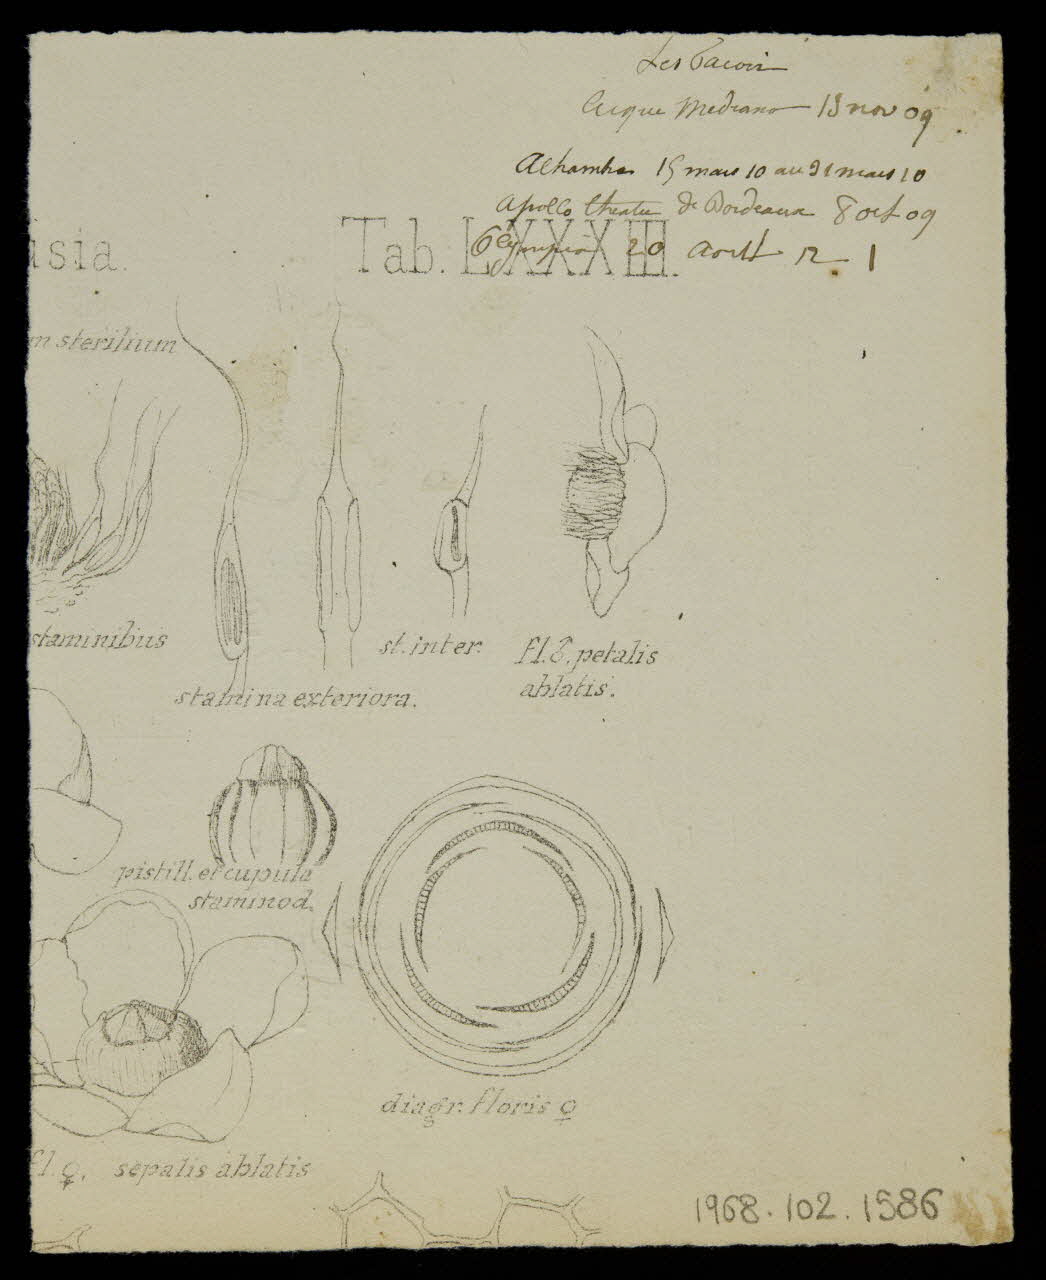 Les
Cirque Medrano 15 nov 09
Alhambra 15 mars 10 au 31 mars 10
Apollo théatre de Bordeaux 8 oct 09
Olympia 20 aout 12 1
usia. Tab. LXXXIII.
m sterilium
staminibus
st. inter.
fl. ♂. petalis
ablatis.
stamina exteriora.
pistill. et cupula
staminod.
diagr. floris ♀
fl. ♀. sepalis ablatis
1968.102.1586